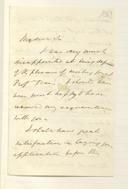 My dear Sir
I was very much
disappointed at being deprived
of the pleasure of meeting you &
Prof. I should have
been most happy to have
renewed my acquaintance
with you.
I shall have great
satisfaction in laying your
application before the